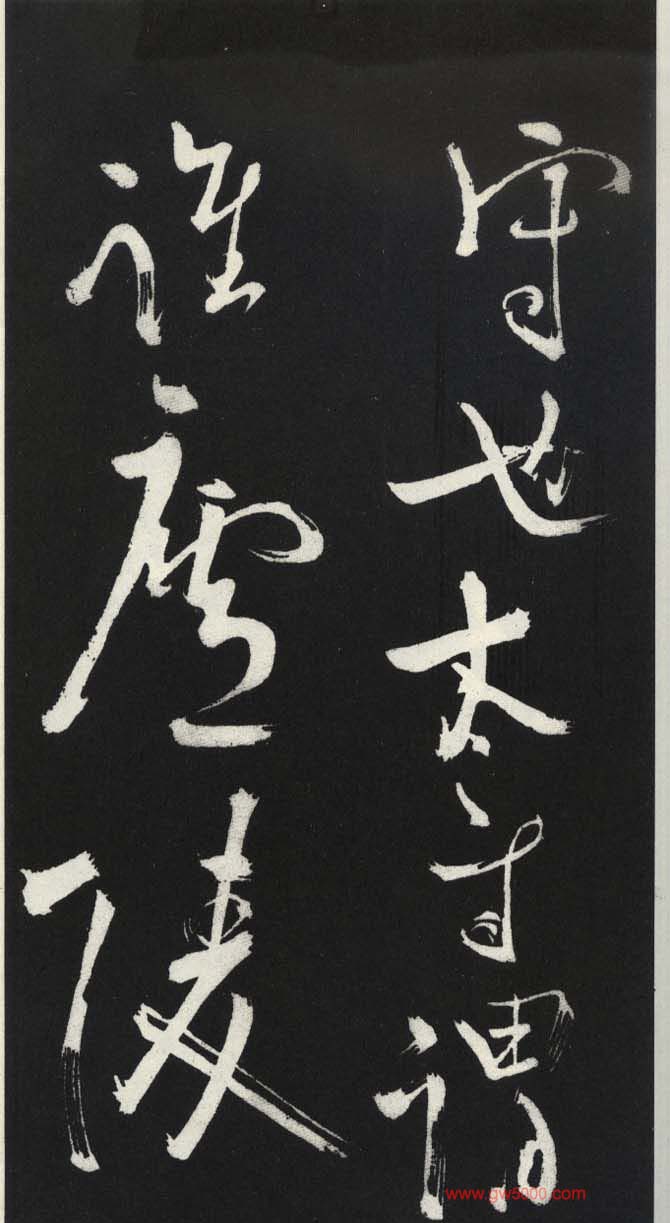 守也太守謂
誰廬陵
www.gw5000.com